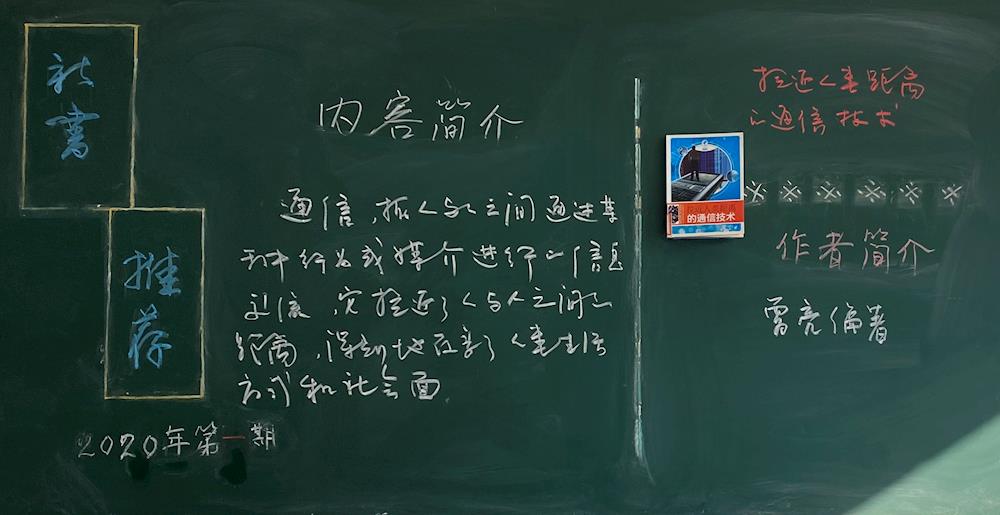 新書
推荐
2020年第一期
内容简介
通信,指人与人之间通过某
种行为或媒介进行的信息
传,它拉近了人与人之间的
距离,深刻地改变了人类生活
方式和社会面
拉近人类距离
的通信技术
的通信技术
※※※※※※
作者简介
雷亮编著